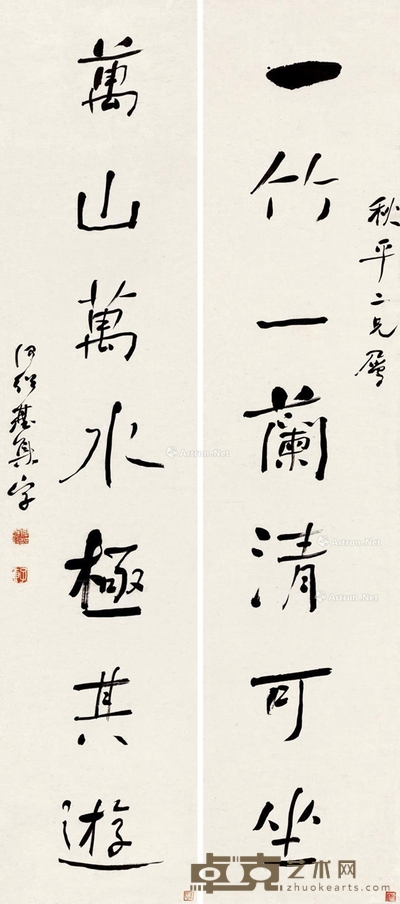 秋平二兄屬
一竹一蘭清可坐
萬山萬水極其遊
何紹基集字
Artron.Net
Artron.Net
Artron.Net
Artron.Net
卓克艺术网
zhuokearts.com